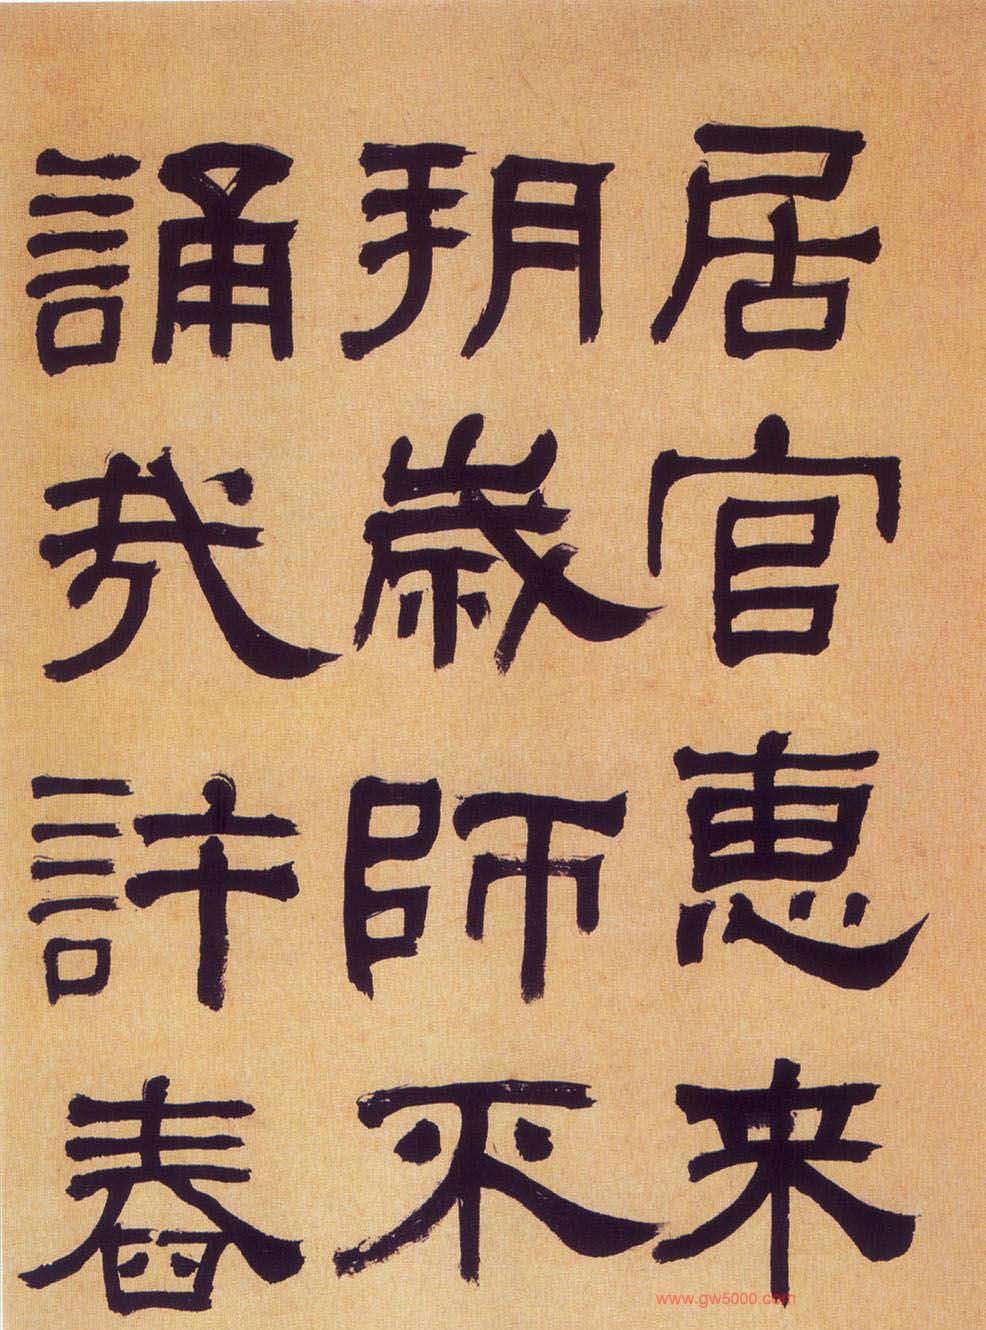 居官恵来
朔歲師不
誦我許舂
www.gw5000.com